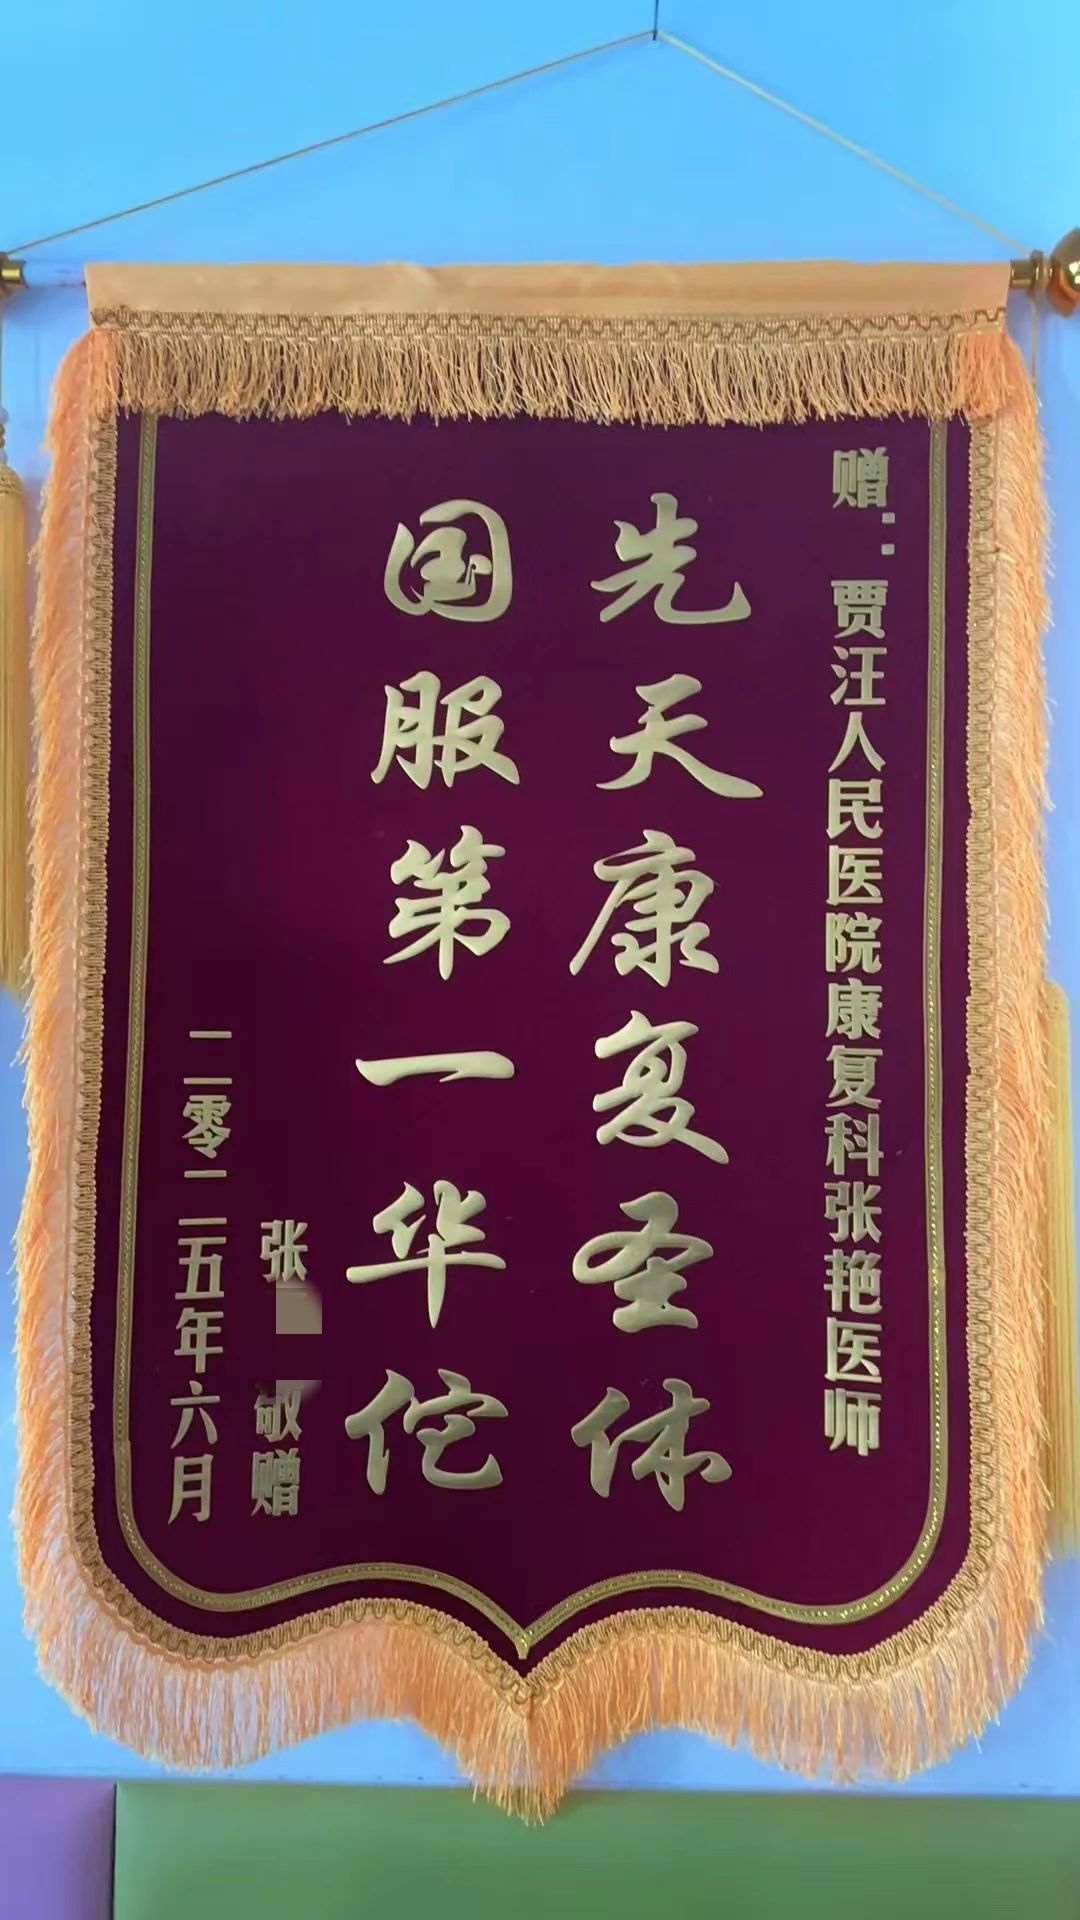 赠：贾汪人民医院康复科张艳医师
先天康复圣体
国服第一华佗
张 敬赠
二零二五年六月